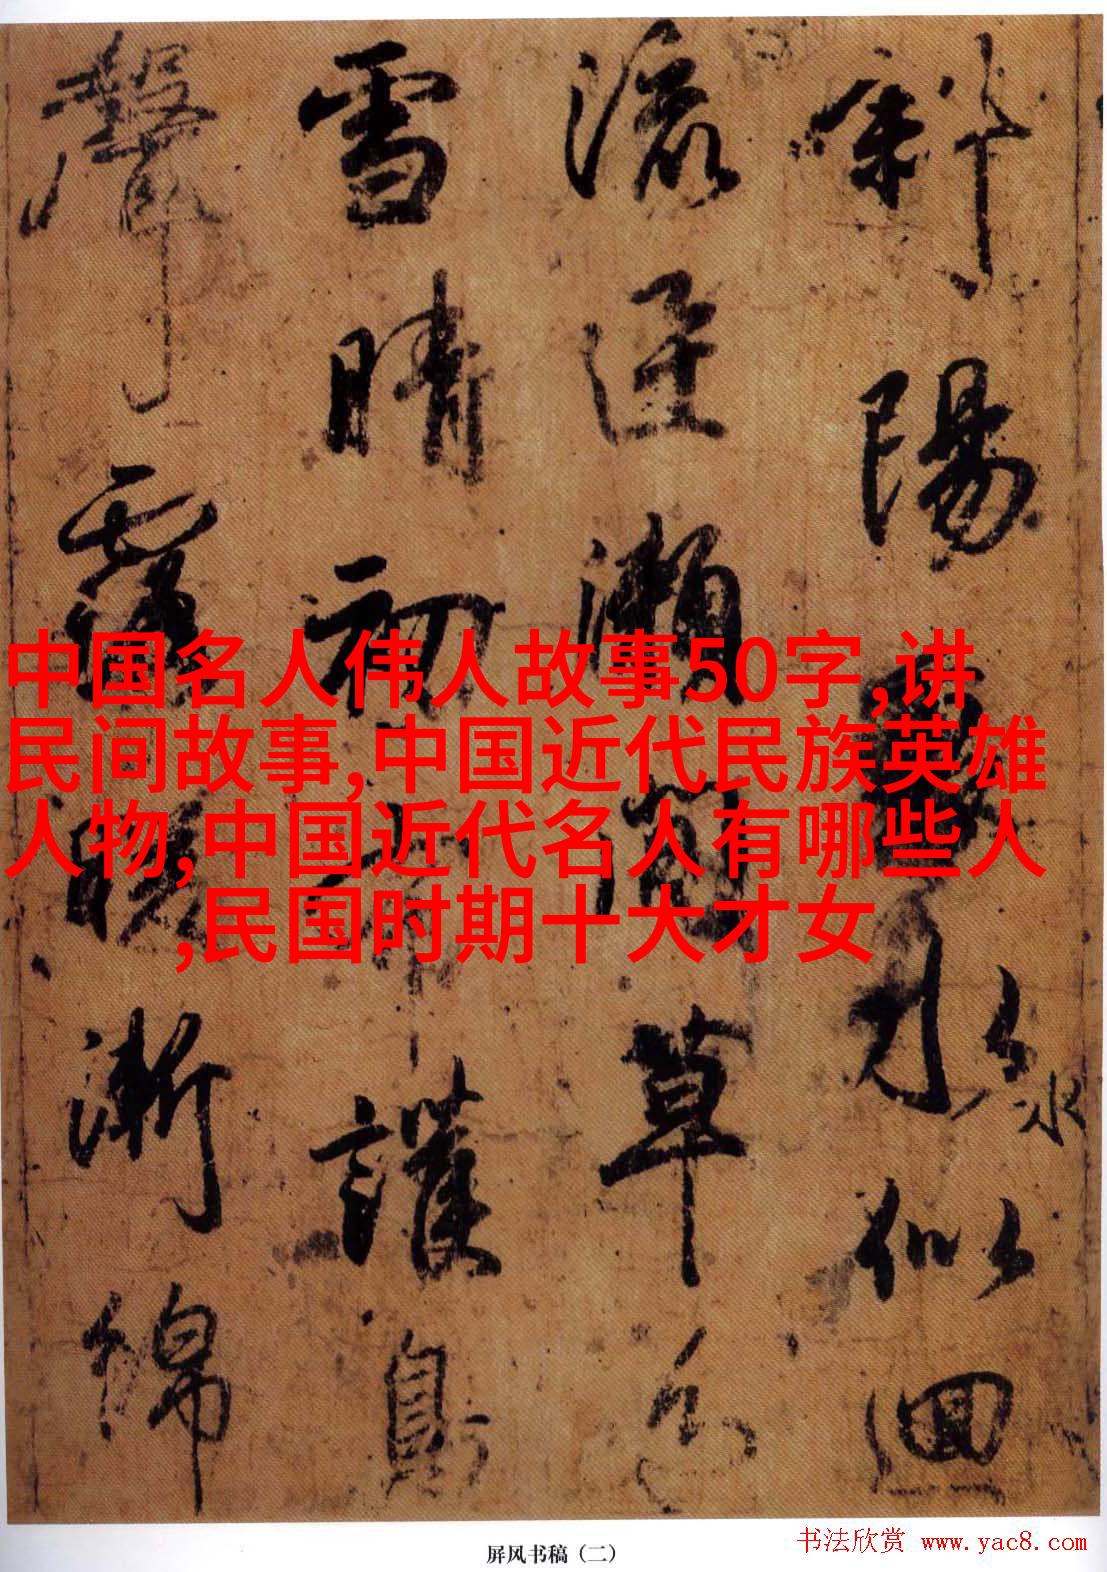 斜陽水似洄
流迸瀨草色
雪晴初布護鳥
聲露暖漸綿
中国名人伟人故事50字,讲
民间故事,中国近代民族英雄
人物,中国近代名人有哪些人
,民国时期十大才女
屏风书稿（二）
书法欣赏 www.yac8.com